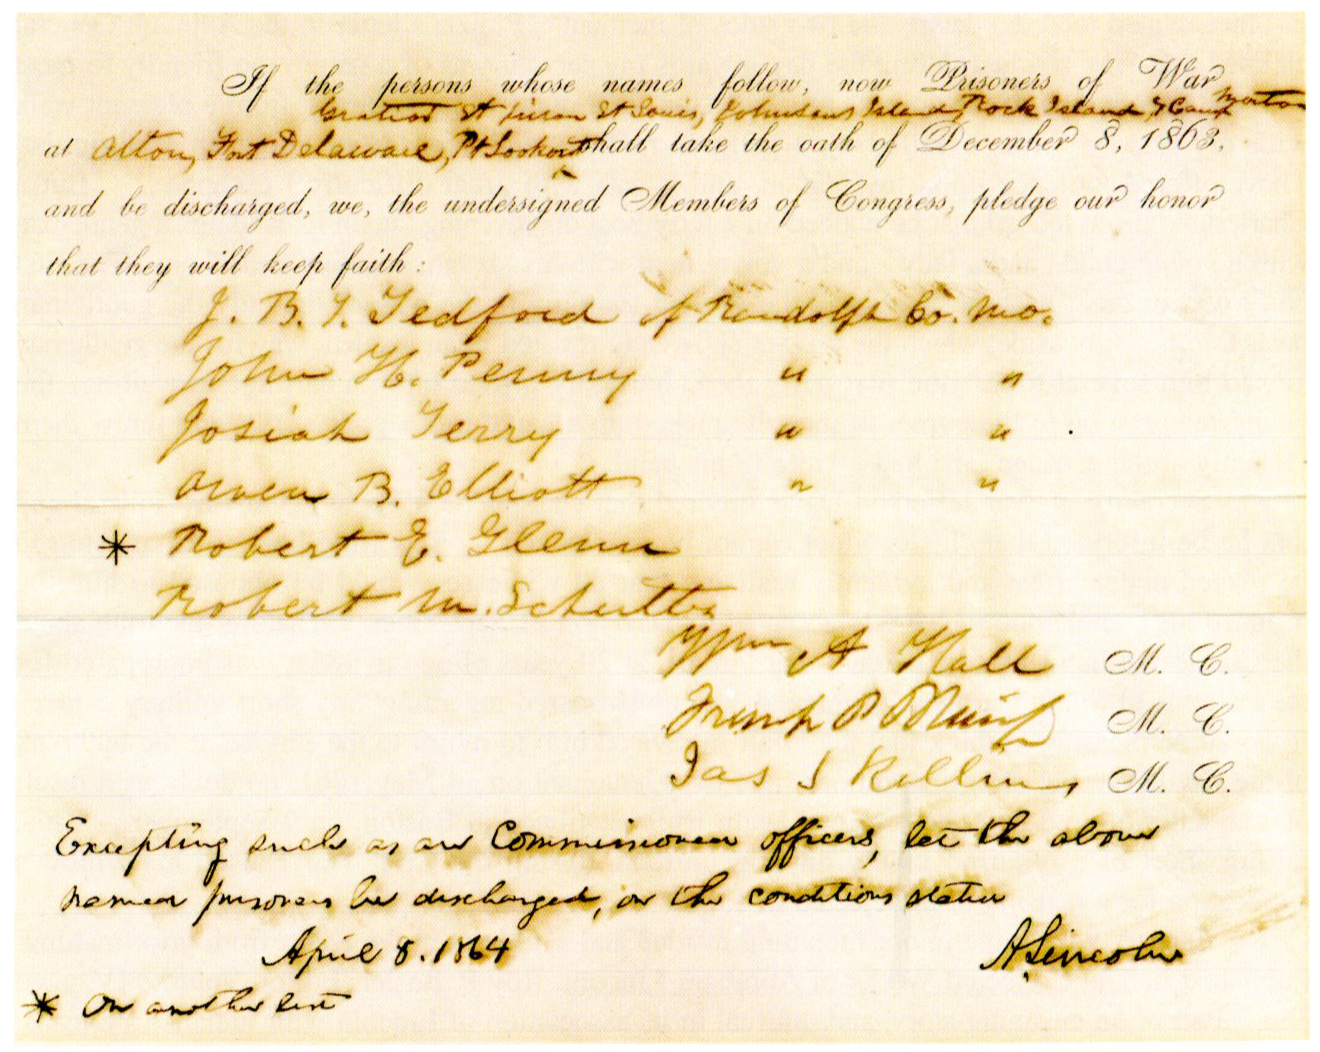 If the persons whose names follow, now Prisoners of War
Gratiot St prison St Louis, Johnsons Island, Rock Island, & Camp Morton
at Alton, Fort Delaware, Pt Lookout shall take the oath of December 8, 1863,
and be discharged, we, the undersigned Members of Congress, pledge our honor
that they will keep faith:
J. B. T. Tedford of Randolph Co. Mo.
John H. Penny " "
Josiah Terry " "
Owen B. Elliott " "
* Robert E. Glenn
Robert M.
Wm A Hall M. C.
Frank P Blair M. C.
Jas S Rollins M. C.
Excepting such as are Commissioned officers, let the above
named prisoners be discharged, on the conditions stated
April 8. 1864 A. Lincoln
* On another list